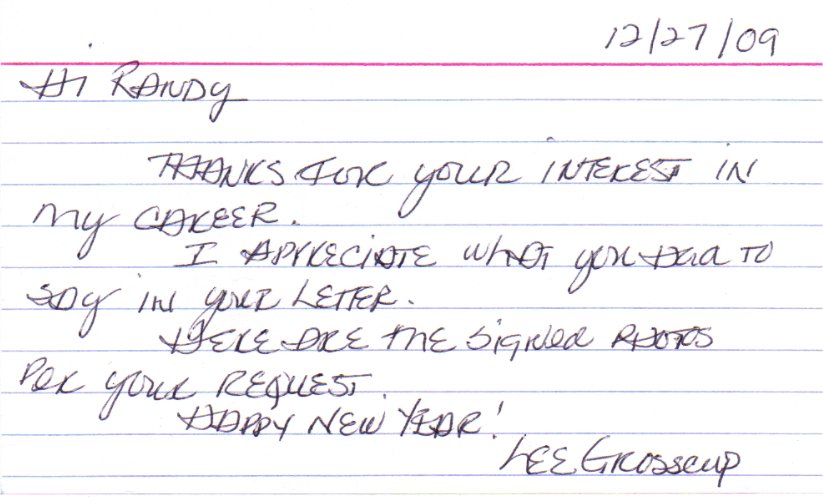 12/27/09
Hi RANDy
THANKS FOR youR INTEREST IN
my CAREER.
I APPRECIATE WHAT you HAd TO
SAy IN youR LETTER.
HERE ARE THE SIgNEd PHOTOS
PER youR REQUEST.
HAPPY NEW YEAR!
LEE GROSSCUP